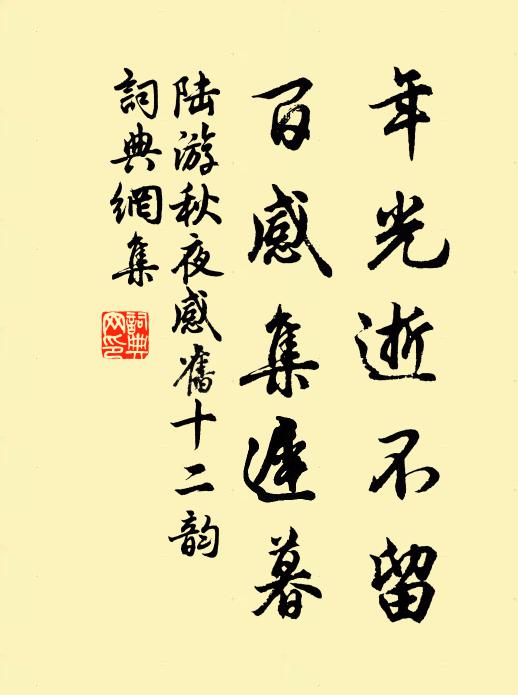 年光逝不留
百感集遲暮
陸游秋夜感舊十二韵
詞典網集
詞典网印